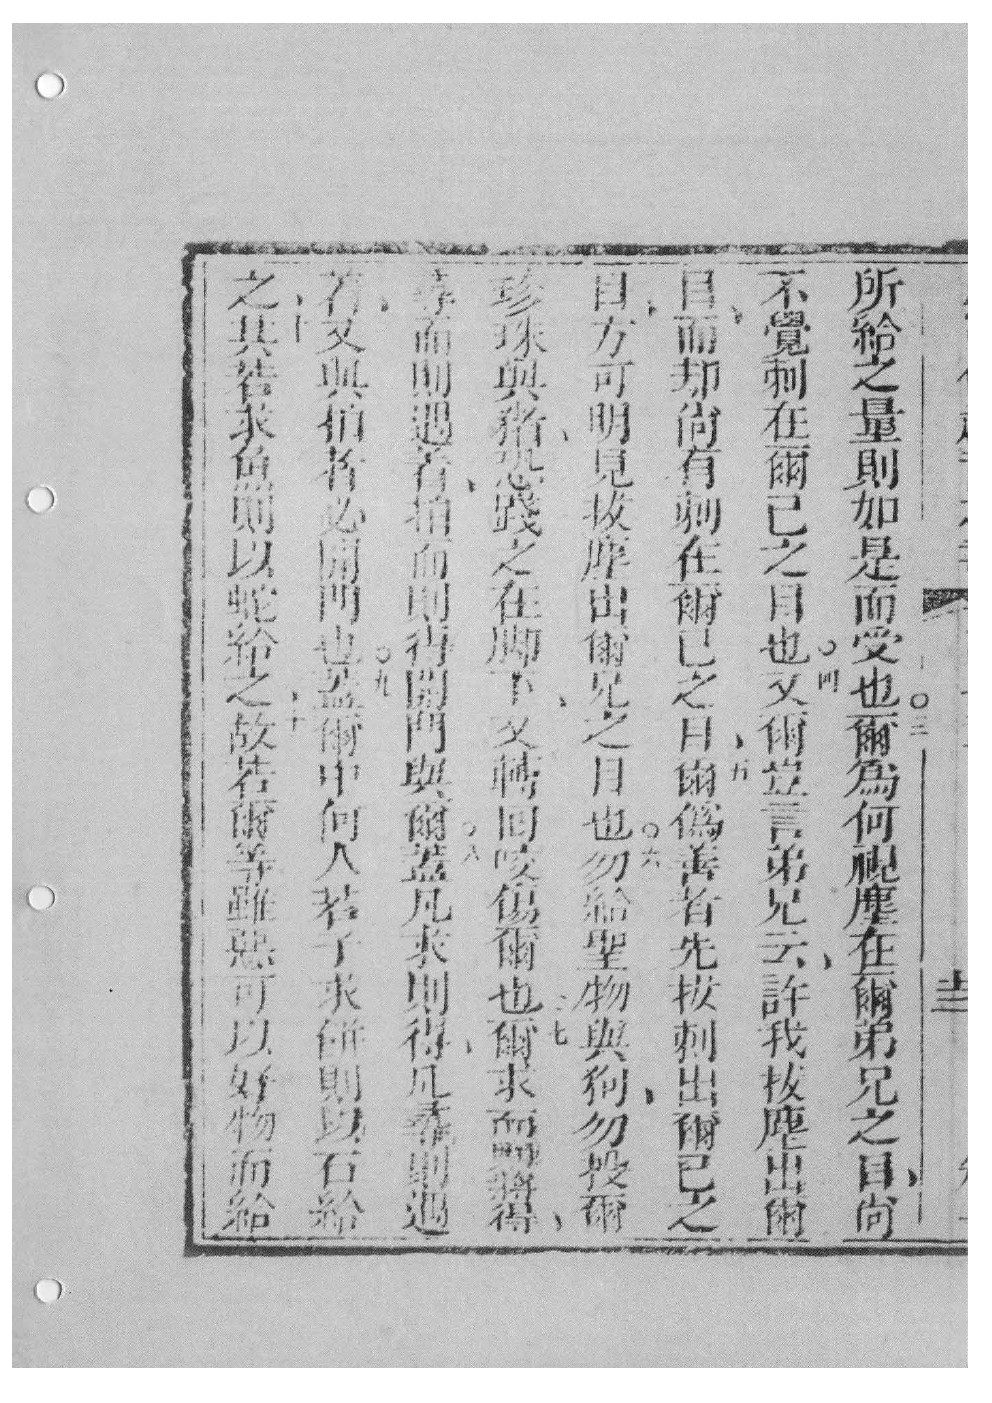 所給之量則如是而受也○三爾為何視塵在爾弟兄之目、尚
不覺刺在爾己之目也○四又爾豈言弟兄云、許我拔塵出爾
目、而却尚有刺在爾已之目、五爾偽善者先拔刺出爾已之
目、方可明見拔塵出爾兄之目也○六勿給聖物與狗、勿投爾
珍珠與猪、恐踐之在脚下、又轉回咬傷爾也○七爾求而與將得、
尋而則遇着、拍而則得開門與爾○八蓋凡求則得、凡尋則遇
着、又與拍者必開門也○九蓋爾中何人若子求餅則以石給
之、十其若求魚則以蛇給之、十故若爾等雖惡可以好物而給